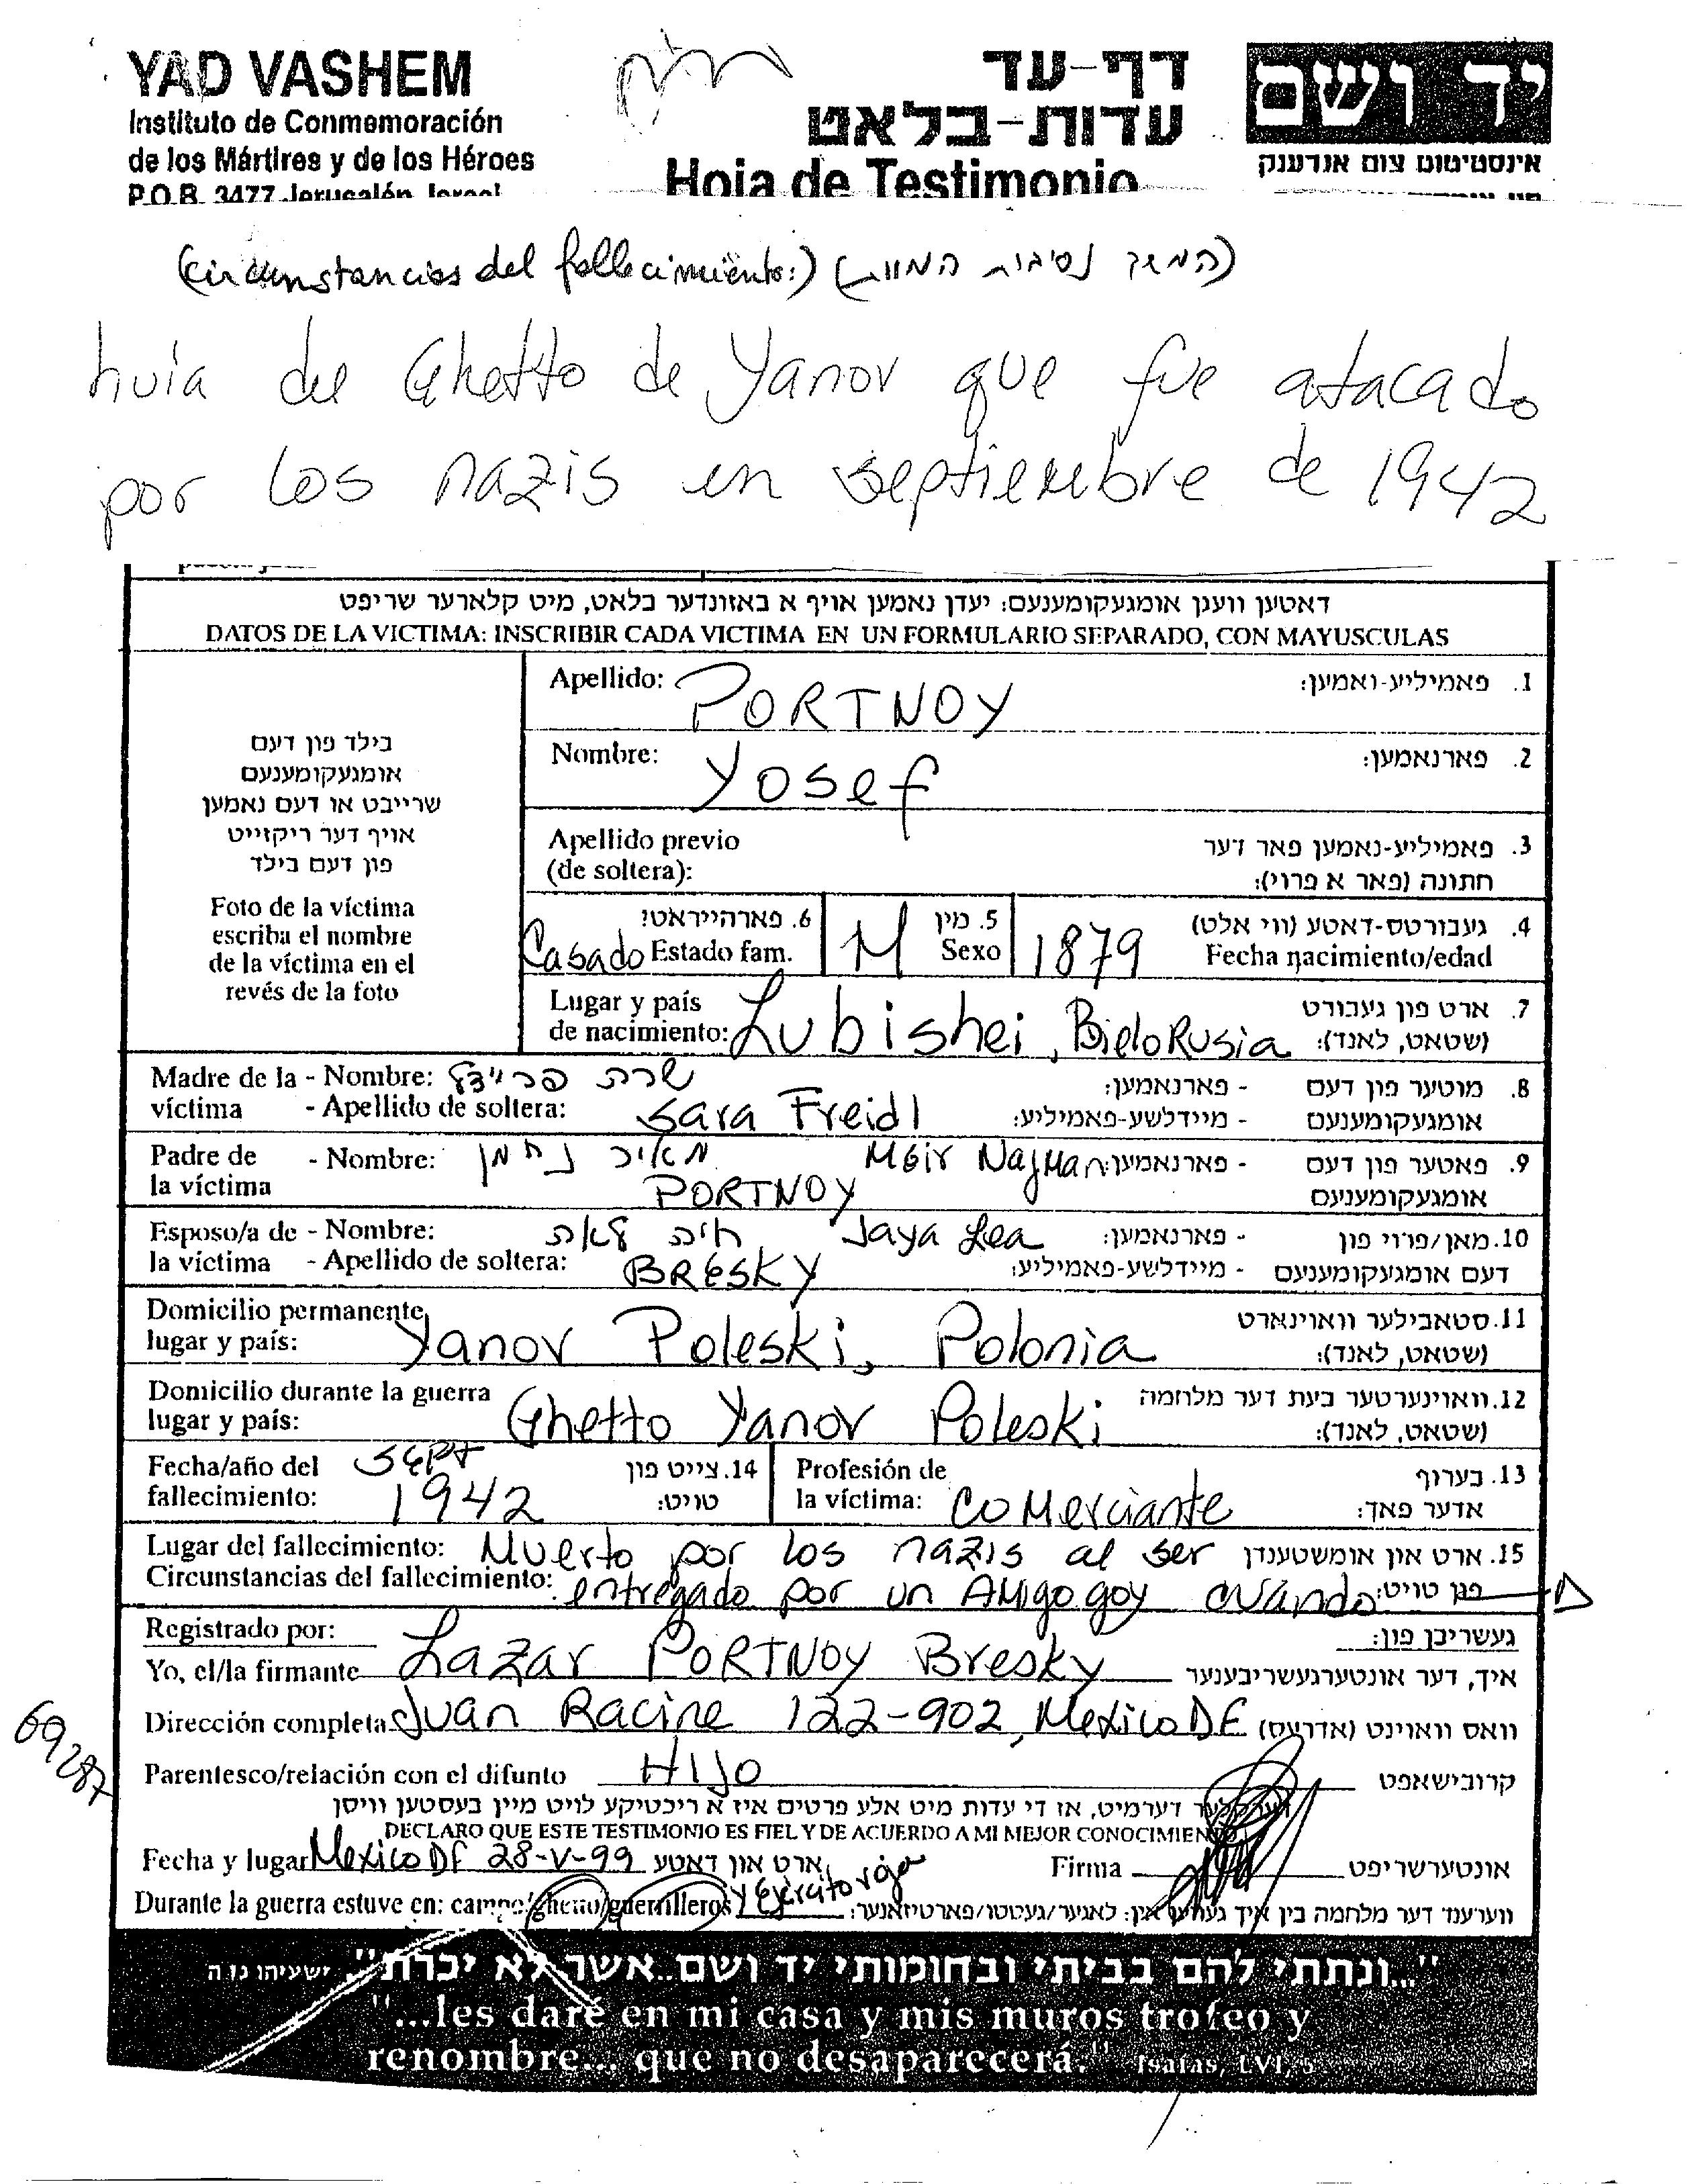 YAD VASHEM
Instituto de Conmemoración
de los Mártires y de los Héroes
P.O.B. 3477 Jerusalén, Israel
דף-עד
עדות-בלאט
Hoja de Testimonio
יד ושם
אינסטיטוט צום אנדענק
(circunstancias del fallecimiento:) (המשך נסיבות המוות)
huia del Ghetto de Yanov que fue atacado
por los nazis en septiembre de 1942
דאטען ווענן אומגעקומענעם: יעדן נאמען אויף א באזונדער בלאט, מיט קלארער שריפט
DATOS DE LA VICTIMA: INSCRIBIR CADA VICTIMA EN UN FORMULARIO SEPARADO, CON MAYUSCULAS
בילד פון דעם
אומגעקומענעם
שרייבט או דעם נאמען
אויף דער ריקזייט
פון דעם בילד
Foto de la víctima
escriba el nombre
de la víctima en el
revés de la foto
Apellido: PORTNOY 1. פאמיליע-נאמען:
Nombre: Yosef 2. פארנאמען:
Apellido previo 3. פאמיליע-נאמען פאר דער
(de soltera): חתונה (פאר א פרוי):
6. פארהייראט? 5. מין 4. געבורטס-דאטע (ווי אלט)
Casado Estado fam. M Sexo 1879 Fecha nacimiento/edad
Lugar y país 7. ארט פון געבורט
de nacimiento: Lubishei, BieloRusia (שטאט, לאנד):
Madre de la - Nombre: שרה פריידל - פארנאמען: 8. מוטער פון דעם
víctima - Apellido de soltera: Sara Freidl - מיידלשע-פאמיליע: אומגעקומענעם
Padre de - Nombre: מאיר נחמן Meir Najman - פארנאמען: 9. פאטער פון דעם
la víctima PORTNOY אומגעקומענעם
Esposo/a de - Nombre: חיה לאה Jaya Lea - פארנאמען: 10. מאן/פרוי פון
la víctima - Apellido de soltera: BRESKY - מיידלשע-פאמיליע: דעם אומגעקומענעם
Domicilio permanente 11. סטאבילער וואוינארט
lugar y país: Yanov Poleski, Polonia (שטאט, לאנד):
Domicilio durante la guerra 12. וואוינערטער בעת דער מלחמה
lugar y país: Ghetto Yanov Poleski (שטאט, לאנד):
Fecha/año del SEPT 14. צייט פון Profesión de 13. בערוף
fallecimiento: 1942 טויט: la víctima: Comerciante אדער פאך:
Lugar del fallecimiento: Muerto por los nazis al ser 15. ארט און אומשטענדן
Circunstancias del fallecimiento: entregado por un Amigo goy cuando פון טויט:
Registrado por: געשריבן פון:
Yo, el/la firmante Lazar PORTNOY Bresky איך, דער אונטערגעשריבענער
Dirección completa Juan Racine 122-902, Mexico DF וואס וואוינט (אדרעס)
69287
Parentesco/relación con el difunto HIJO קרובישאפט
דערקלער דערמיט, אז די עדות מיט אלע פרטים איז א ריכטיקע לויט מיין בעסטען וויסן
DECLARO QUE ESTE TESTIMONIO ES FIEL Y DE ACUERDO A MI MEJOR CONOCIMIENTO
Fecha y lugar Mexico DF 28-V-99 ארט און דאטע Firma אונטערשריפט
Durante la guerra estuve en: campo/ghetto/guerrilleros y Ejército rojo ווערענד דער מלחמה בין איך געווען אין: לאגער/געטטו/פארטיזאנער:
"...ונתתי להם בביתי ובחומותי יד ושם...אשר לא יכרת" ישעיהו נו ה
"...les daré en mi casa y mis muros trofeo y
renombre... que no desaparecerá." Isaías, LVI, 5